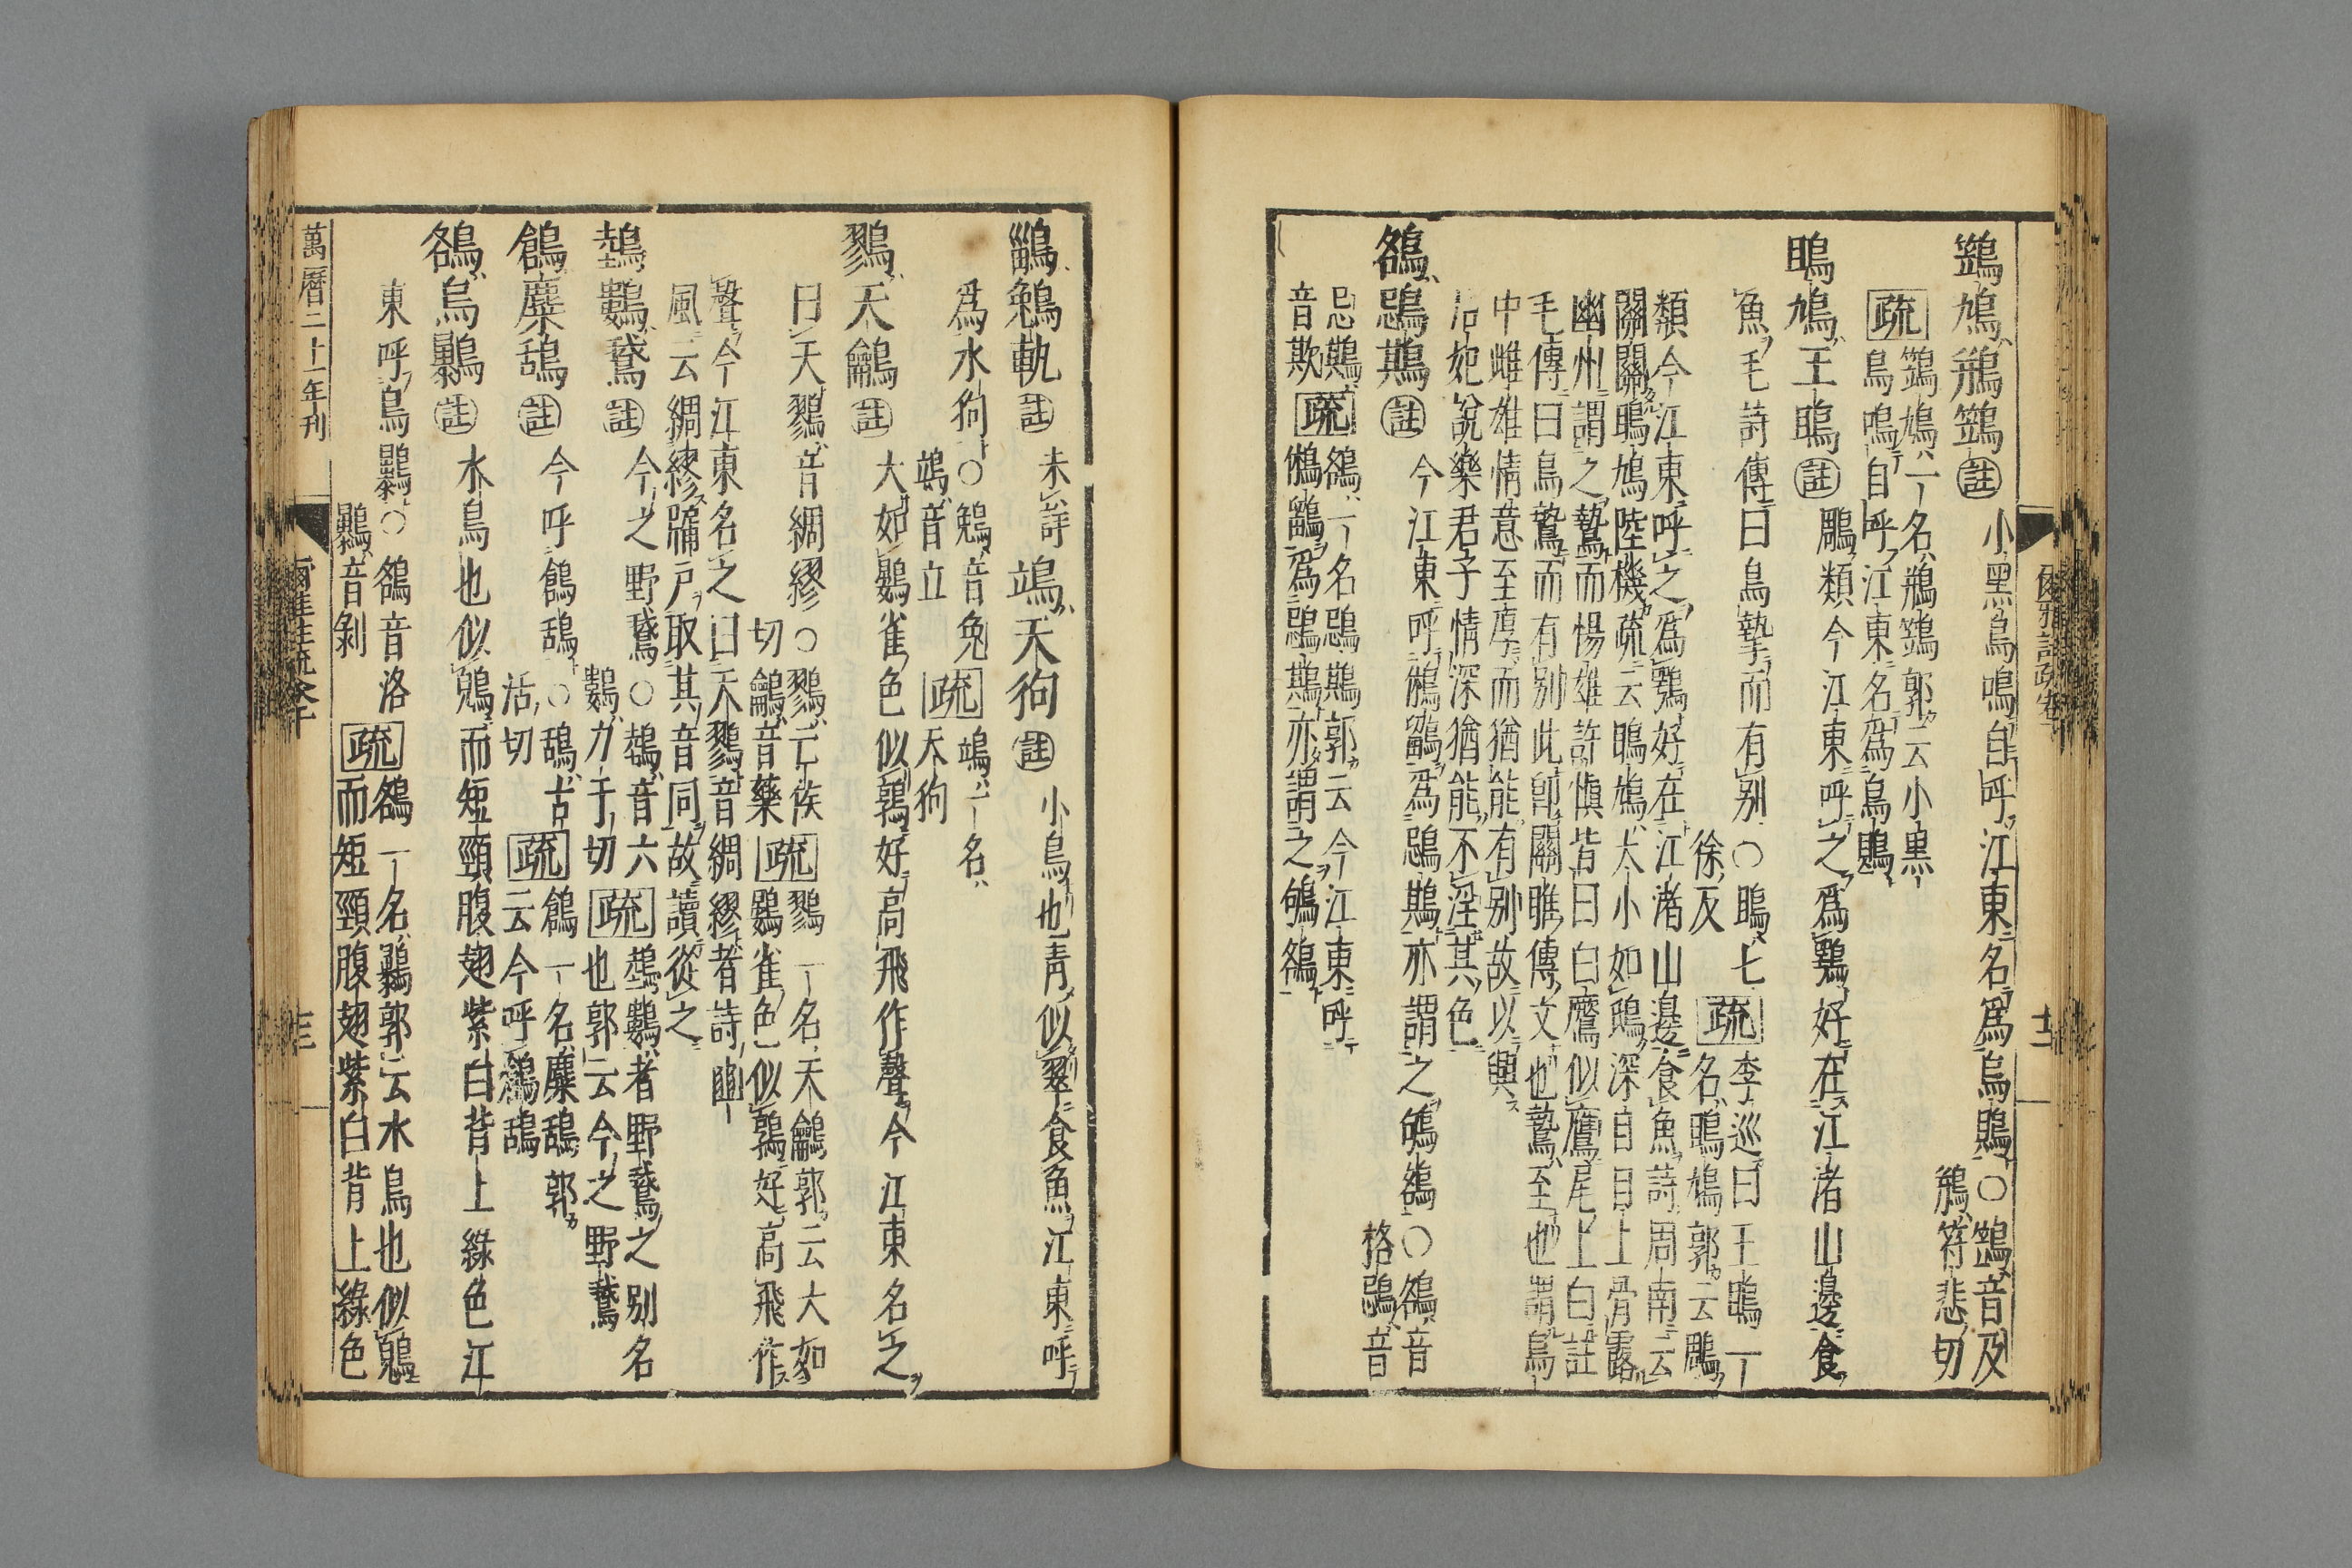 鷑鳩鵧鷑註小黑鳥鳴自呼江東名爲烏鴡〇鷑音及
鵧符悲切
疏鷑鳩一名鵧鷑郭云小黒
鳥鳴自呼江東名爲烏鴡
鴡鳩王鴡註鵰類今江東呼之爲鶚好在江渚山邊食
魚毛詩傳曰鳥摯而有別〇鴡七
徐反
疏李巡曰王鴡一
名鴡鳩郭云鵰
類今江東呼之爲鶚好在江渚山邊食魚詩周南云
關關鴡鳩陸機疏云鴡鳩大小如鴟深目目上骨露
幽州謂之鷲而楊雄許愼皆曰白鷹似鷹尾上白註
毛傳曰鳥鷙而有別此卽關雎傳文也鷙至也謂鳥
中雌雄情意至厚而猶能有別故以興
后妃說樂君子情深猶能不淫其色
鵅鵋䳢註今江東呼鵂鶹爲鵋䳢亦謂之鴝鵅〇鵅音
格鵋音
忌䳢
音欺
疏鵅一名鵋䳢郭云今江東呼
鵂鶹爲鵋䳢亦謂之鴝鵅
鶅鵵軌註未詳鴗天狗註小鳥也靑似翠食魚江東呼
爲水狗〇鵵音兔
鴗音立
疏鴗一名
天狗
鷚天鸙註大如鷃雀色似鶉好高飛作聲今江東名之
曰天鷚音綢繆〇鷚亡侯
切鸙音藥
疏鷚一名天鸙郭云大如
鷃雀色似鶉好高飛作
聲今江東名之曰天鷚音綢繆者詩豳
風云綢繆牖戶取其音同故讀從之
鵱鷜鵞註今之野鵞〇鵱音六
鷜力于切
疏鵱鷜者野鵞之別名
也郭云今之野鵞
鶬麋鴰註今呼鶬鴰〇鴰古
活切
疏鶬一名麋鴰郭
云今呼鶬鴰
鵅烏鸔註水鳥也似鶂而短頸腹翅紫白背上綠色江
東呼烏鸔〇鵅音洛
鸔音剝
疏鵅一名鸔郭云水鳥也似鶂
而短頸腹翅紫白背上綠色
萬曆二十一年刊